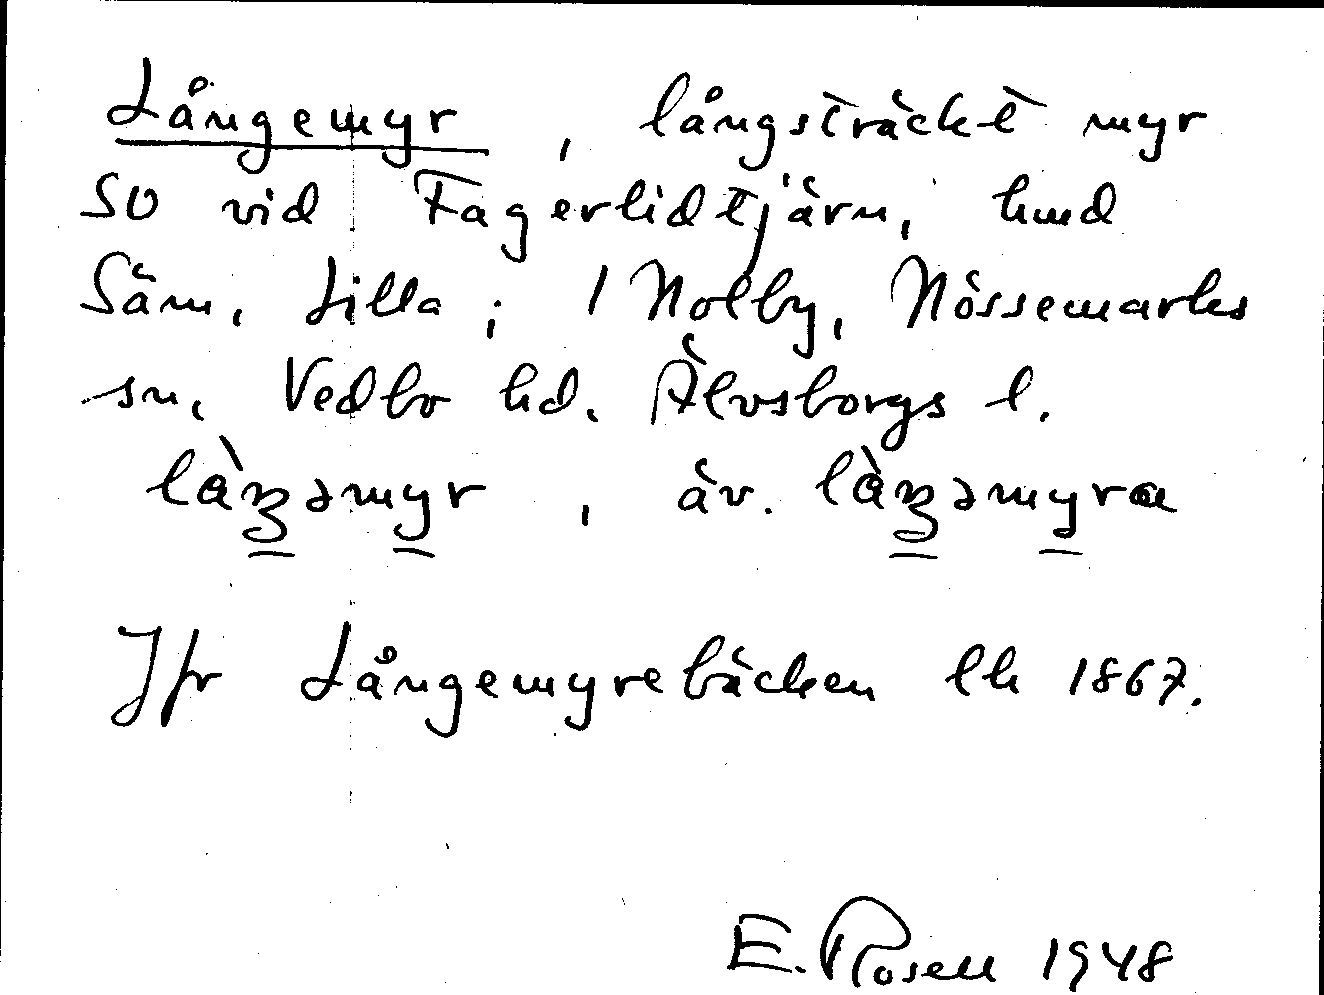 Långemyr, långsträckt myr
SO vid Fagerlidtjärn, hmd
Säm, Lilla; 1 Nolby, Nössemarks
sn, Vedbo hd. Älvsborgs l.
làŋəmyr, äv. làŋəmyra
Jfr Långemyrebäcken lh 1867.
E. Rosell 1948